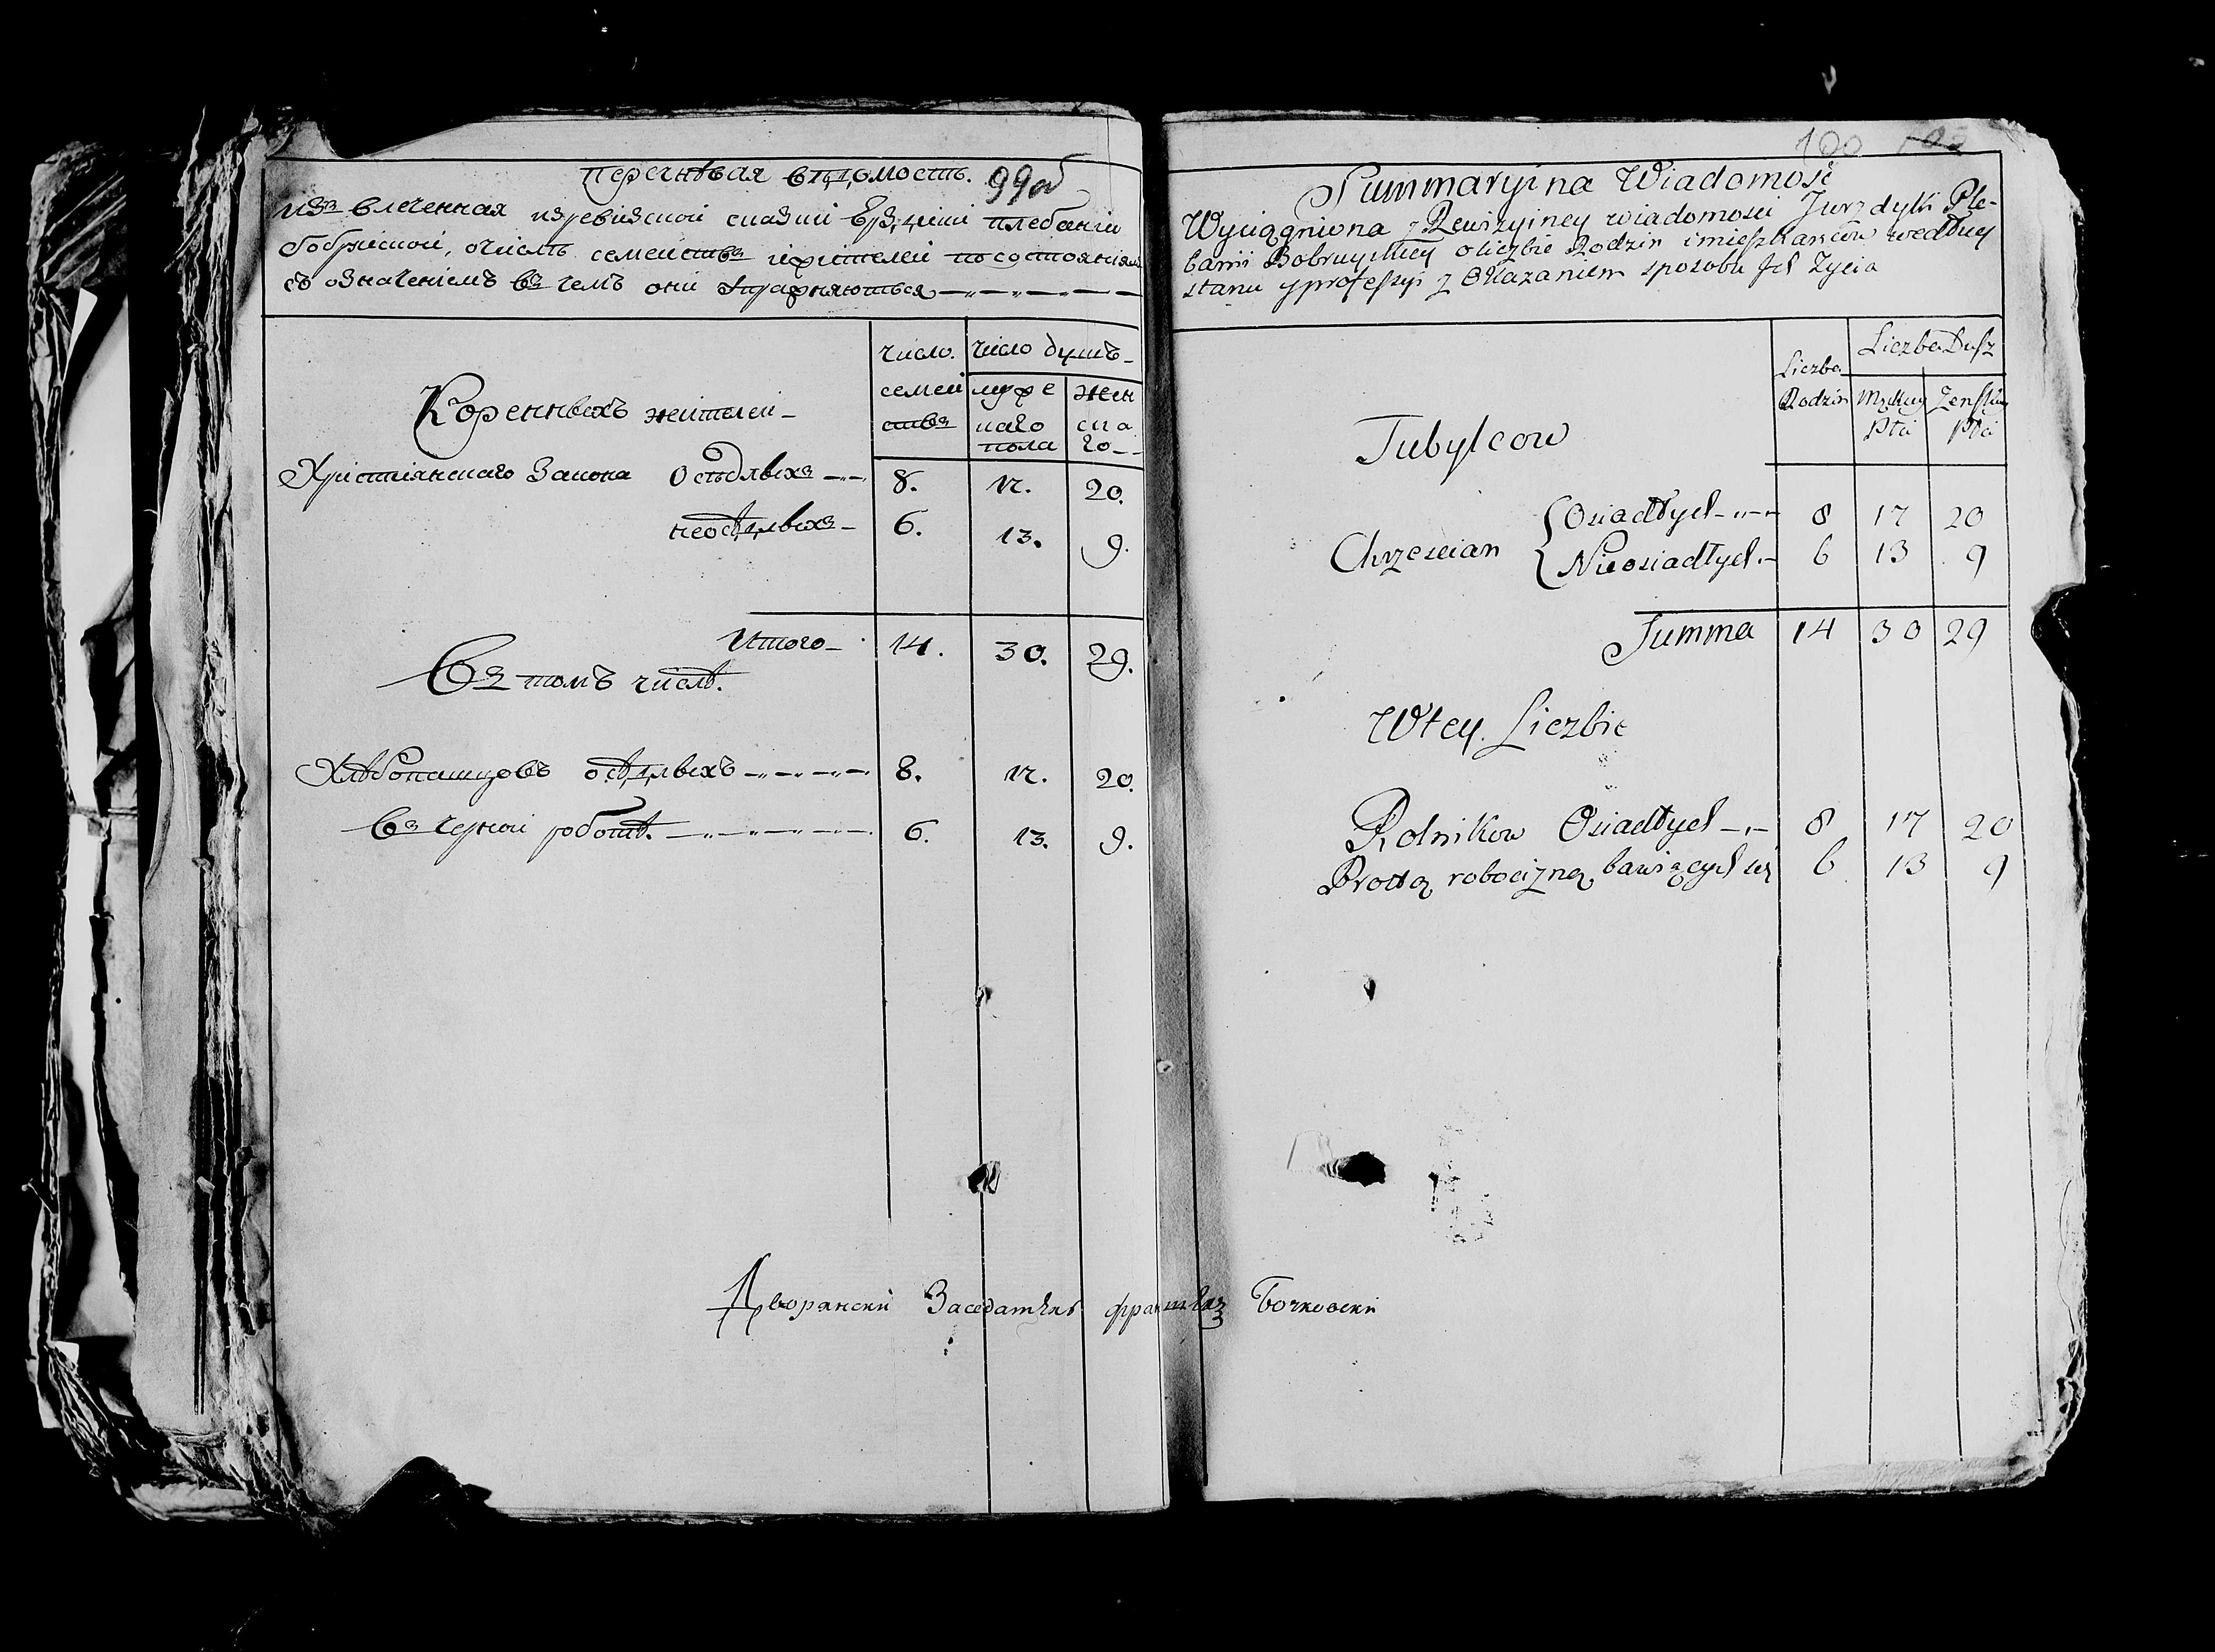 Перечнѣвая вѣдомость. 99об
изъ влеченная изревизской сказки Юрздики плебаніи
бобруйской, очислѣ семействъ ижителей посостоянія
съ означеніемъ въ чемъ они упражняються
число. число душъ
семей муже жен
ствъ наго ска
пола го
Коренныхъ жителей
Христіянскаго Закона Осѣдлыхъ 8. 17. 20.
неосѣдлыхъ 6. 13. 9.
Итого 14. 30. 29.
Въ томъ числѣ.
Хлѣбопашцовъ осѣдлыхъ 8. 17. 20.
Въ черной роботѣ. 6. 13. 9.
Дворянски Заседатель Францъ Бочковски
100
Summaryina Wiadomość
Wyciągniona z Rewizyiney wiadomosci Jurzdyki Ple-
banii Bobruyskiey o liczbie Rodzin i mieszkancow według
stanu y professyi z Okazaniem sposobu Ich Zycia
Liczba Liczba Dusz
Rodzin Męskiey Zenskiey
Płci Płci
Tubylcow
Chrzescian Osiadłych 8 17 20
Nieosiadłych 6 13 9
Summa 14 30 29
W tey Liczbie
Rolnikow Osiadłych 8 17 20
Prostą robocizną bawiących się 6 13 9